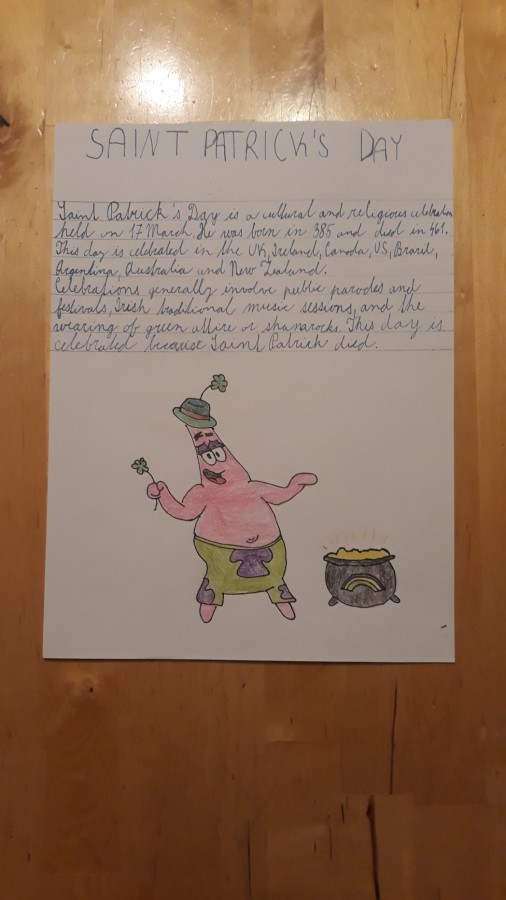 SAINT PATRICK'S DAY
Saint Patrick's Day is a cultural and religious celebration
held on 17 March. He was born in 385 and died in 461.
This day is celebrated in the UK, Ireland, Canada, US, Brazil,
Argentina, Australia and New Zealand.
Celebrations generally involve public parades and
festivals, Irish traditional music sessions, and the
wearing of green attire or shamrocks. This day is
celebrated because Saint Patrick died.